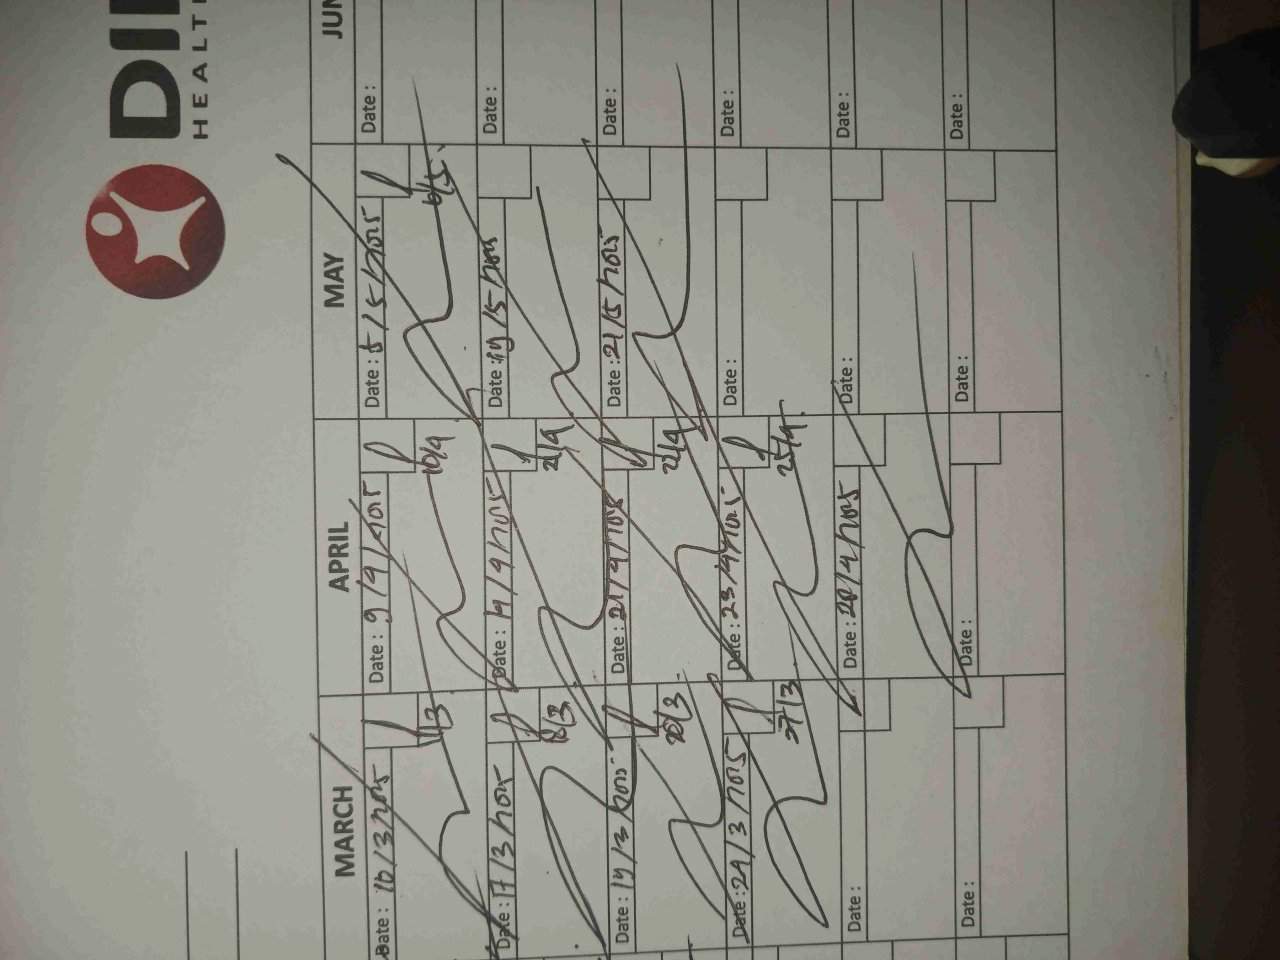 DI
HEALT
MARCH APRIL MAY JUN
Date: 10/3/2025 Date: 9/4/2025 Date: 5/5/2025 Date:
11/3 10/4 6/5
Date: 17/3/2025 Date: 14/4/2025 Date: 19/5/2025 Date:
18/3 21/4
Date: 19/3/2025 Date: 21/4/2025 Date: 21/5/2025 Date:
20/3 22/4
Date: 24/3/2025 Date: 23/4/2025 Date: Date:
27/3 25/4
Date: Date: 28/4/2025 Date: Date:
Date: Date: Date: Date: